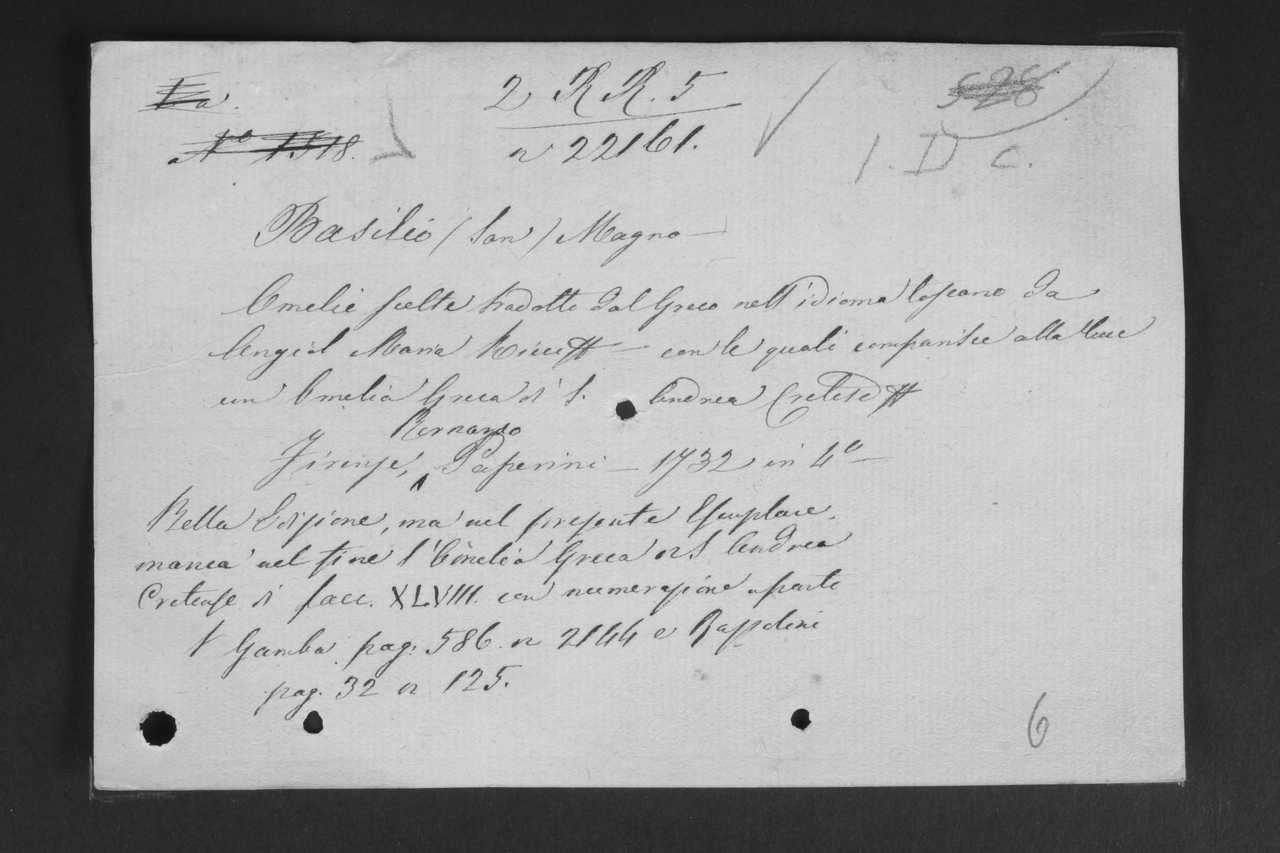 2 RR. 5
n 22161.
1. D c.
Basilio (San) Magno —
Omelie scelte tradotte dal Greco nell'idioma toscano da
Angiol Maria Ricci — con le quali comparisce alla luce
un Omelia Greca di S. Andrea Cretese
Bernardo
Firenze, Paperini — 1732 in 4º —
Bella Edizione, ma nel presente Esemplare,
manca nel fine l'Omelia Greca di S Andrea
Cretense di facc. XLVIII. con numerazione a parte
V Gamba pag. 586. n 2144 e
pag. 32 n 125.
6